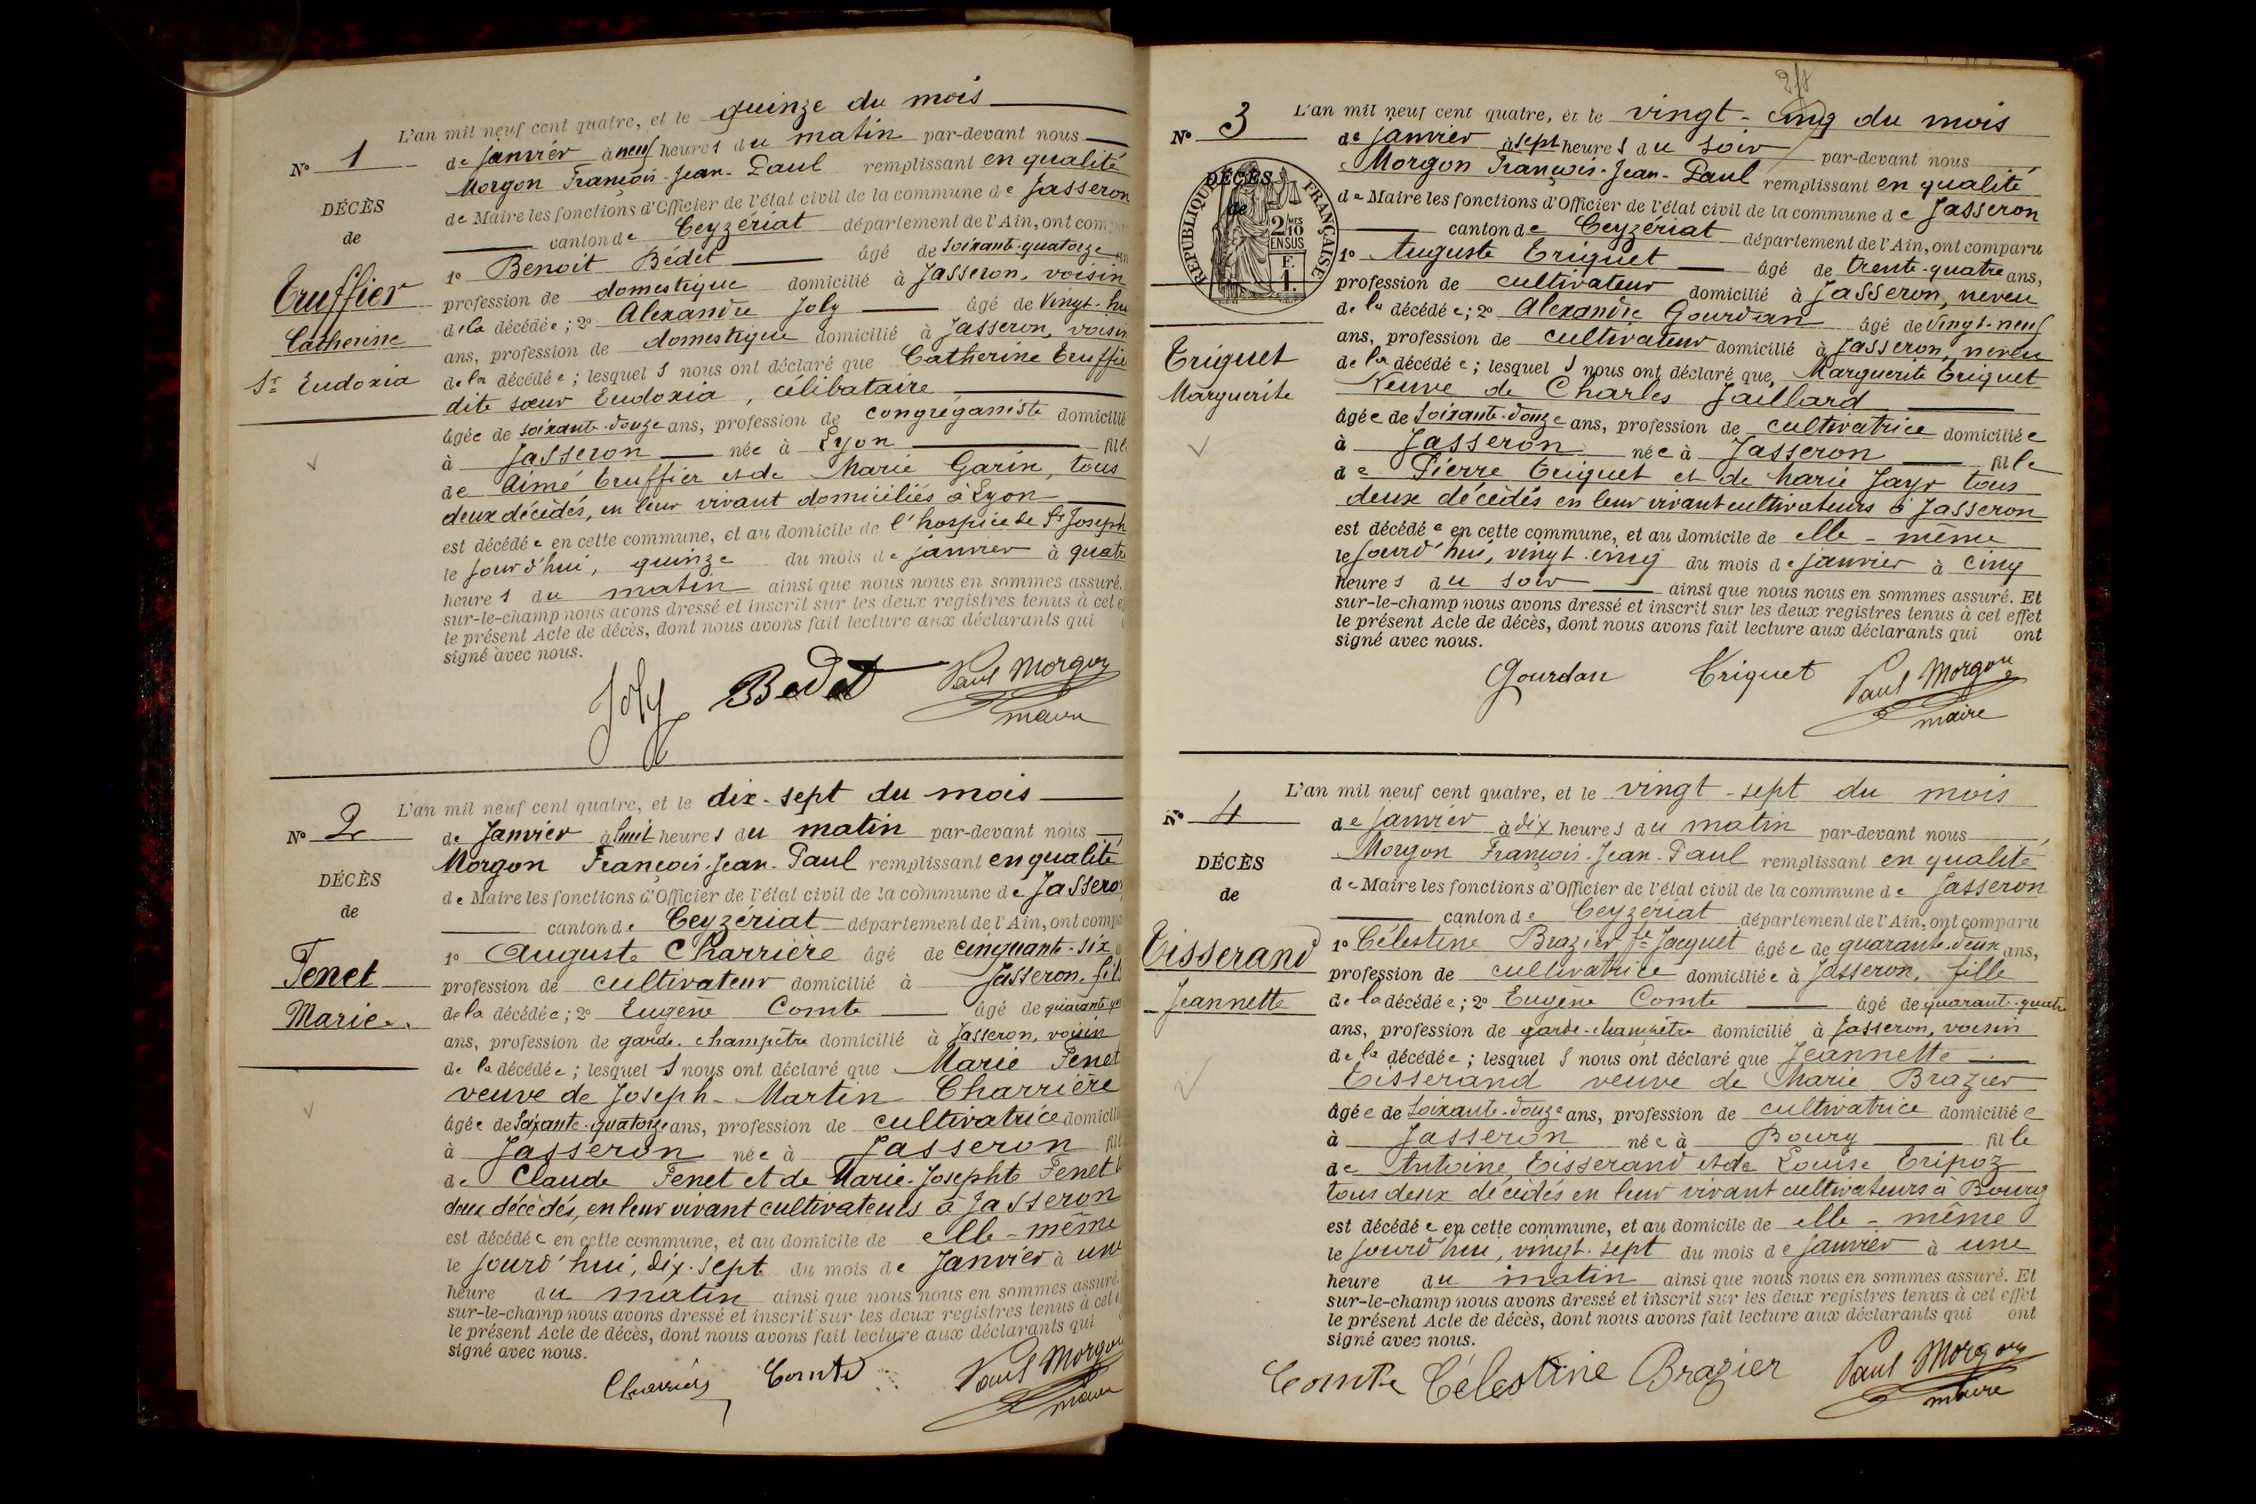 N° 1
DÉCÈS
de
Truffier
Catherine
Sr Eudoxia
L'an mil neuf cent quatre, et le quinze du mois
de Janvier à neuf heures du matin par-devant nous
Morgon François-Jean-Paul remplissant en qualité
de Maire les fonctions d'Officier de l'état civil de la commune de Jasseron
canton de Ceyzériat département de l'Ain, ont comp
1° Benoit Bédet âgé de soixante-quatorze
profession de domestique domicilié à Jasseron, voisin
de la décédée; 2° Alexandre Joly âgé de vingt-hu
ans, profession de domestique domicilié à Jasseron, voisin
de la décédée; lesquels nous ont déclaré que Catherine Truffie
dite sœur Eudoxia, célibataire
âgée de soixante-douze ans, profession de congréganiste domicilié
à Jasseron née à Lyon fill
de Aimé Truffier et de Marie Garin, tous
deux décédés, en leur vivant domiciliés à Lyon
est décédée en cette commune, et au domicile de l'hospice de St Joseph
le jourd'hui, quinze du mois de janvier à quatre
heures du matin ainsi que nous nous en sommes assuré.
sur-le-champ nous avons dressé et inscrit sur les deux registres tenus à cet e
le présent Acte de décès, dont nous avons fait lecture aux déclarants qui
signé avec nous.
Joly Bedet Paul Morgon
maire
N° 2
DÉCÈS
de
Tenet
Marie
L'an mil neuf cent quatre, et le dix-sept du mois
de Janvier à huit heures du matin par-devant nous
Morgon François-Jean-Paul remplissant en qualité
de Maire les fonctions d'Officier de l'état civil de la commune de Jassero
canton de Ceyzériat département de l'Ain, ont compa
1° Auguste Charrière âgé de cinquante-six
profession de cultivateur domicilié à Jasseron, fils
de la décédée; 2° Eugène Comte âgé de quarante-qua
ans, profession de garde-champêtre domicilié à Jasseron, voisin
de la décédée; lesquels nous ont déclaré que Marie Tenet
veuve de Joseph-Martin Charrière
âgée de soixante-quatorze ans, profession de cultivatrice domicili
à Jasseron née à Jasseron fill
de Claude Tenet et de Marie-Josephte Tenet t
deux décédés, en leur vivant cultivateurs à Jasseron
est décédée en cette commune, et au domicile de elle-même
le jourd'hui, dix-sept du mois de Janvier à une
heure du matin ainsi que nous nous en sommes assuré.
sur-le-champ nous avons dressé et inscrit sur les deux registres tenus à cet e
le présent Acte de décès, dont nous avons fait lecture aux déclarants qui
signé avec nous.
Charrière Comte Paul Morgon
maire
N° 3
DÉCÈS
de
RÉPUBLIQUE FRANÇAISE
2/10 MES
EN SUS
F.
1.
Triquet
Marguerite
L'an mil neuf cent quatre, et le vingt-cinq du mois
de Janvier à sept heures du soir par-devant nous
Morgon François-Jean-Paul remplissant en qualité
de Maire les fonctions d'Officier de l'état civil de la commune de Jasseron
canton de Ceyzériat département de l'Ain, ont comparu
1° Auguste Triquet âgé de trente-quatre ans,
profession de cultivateur domicilié à Jasseron, neveu
de la décédée; 2° Alexandre Gourdan âgé de vingt-neuf
ans, profession de cultivateur domicilié à Jasseron, neveu
de la décédée; lesquels nous ont déclaré que Marguerite Triquet
Veuve de Charles Jaillard
âgée de soixante-douze ans, profession de cultivatrice domiciliée
à Jasseron née à Jasseron fille
de Pierre Triquet et de Marie Jayr tous
deux décédés en leur vivant cultivateurs à Jasseron
est décédée en cette commune, et au domicile de elle-même
le jourd'hui, vingt-cinq du mois de janvier à cinq
heures du soir ainsi que nous nous en sommes assuré. Et
sur-le-champ nous avons dressé et inscrit sur les deux registres tenus à cet effet
le présent Acte de décès, dont nous avons fait lecture aux déclarants qui ont
signé avec nous.
Gourdan Triquet Paul Morgon
maire
N° 4
DÉCÈS
de
Tisserand
Jeannette
L'an mil neuf cent quatre, et le vingt-sept du mois
de Janvier à dix heures du matin par-devant nous
Morgon François-Jean-Paul remplissant en qualité
de Maire les fonctions d'Officier de l'état civil de la commune de Jasseron
canton de Ceyzériat département de l'Ain, ont comparu
1° Célestine Brazier fe Jacquet âgée de quarante-deux ans,
profession de cultivatrice domiciliée à Jasseron, fille
de la décédée; 2° Eugène Comte âgé de quarante-quatre
ans, profession de garde-champêtre domicilié à Jasseron, voisin
de la décédée; lesquels nous ont déclaré que Jeannette
Tisserand veuve de Marie Brazier
âgée de soixante-douze ans, profession de cultivatrice domiciliée
à Jasseron née à Bourg fille
de Antoine Tisserand et de Louise Tripoz
tous deux décédés en leur vivant cultivateurs à Bourg
est décédée en cette commune, et au domicile de elle-même
le jourd'hui, vingt-sept du mois de janvier à une
heure du matin ainsi que nous nous en sommes assuré. Et
sur-le-champ nous avons dressé et inscrit sur les deux registres tenus à cet effet
le présent Acte de décès, dont nous avons fait lecture aux déclarants qui ont
signé avec nous.
Comte Célestine Brazier Paul Morgon
maire